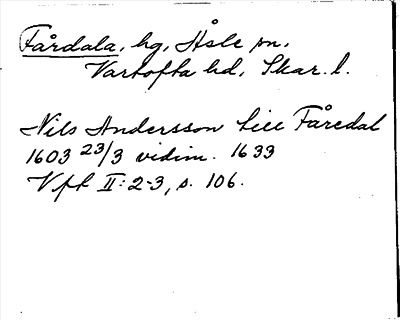 Fårdala, hg, Åsle sn,
Vartofta hd, Skar. l.
Nils Andersson till Fåredal
1603 23/3 vidim. 1633
Vfk II: 2-3, s. 106.